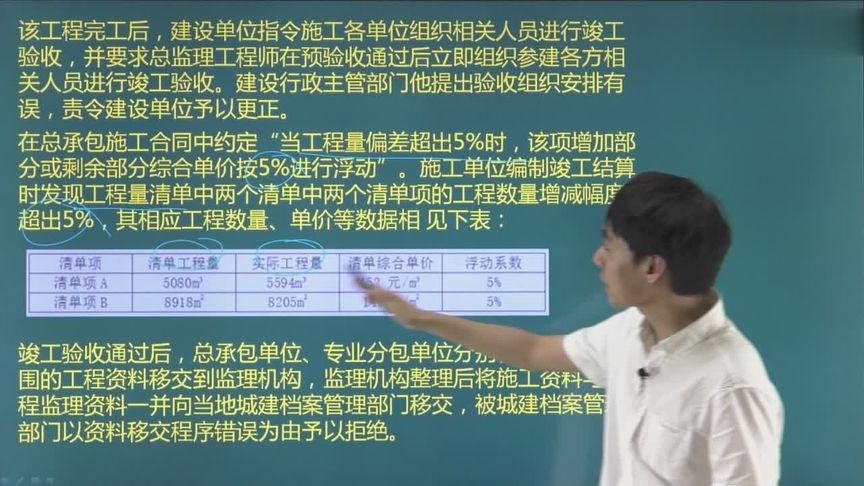 该工程完工后，建设单位指令施工各单位组织相关人员进行竣工
验收，并要求总监理工程师在预验收通过后立即组织参建各方相
关人员进行竣工验收。建设行政主管部门他提出验收组织安排有
误，责令建设单位予以更正。
在总承包施工合同中约定“当工程量偏差超出5%时，该项增加部
分或剩余部分综合单价按5%进行浮动”。施工单位编制竣工结算
时发现工程量清单中两个清单中两个清单项的工程数量增减幅度
超出5%，其相应工程数量、单价等数据相 见下表：
清单项 清单工程量 实际工程量 清单综合单价 浮动系数
清单项A 5080m³ 5594m³ 元/m³ 5%
清单项B 8918m² 8205m² 5%
竣工验收通过后，总承包单位、专业分包单位分别
围的工程资料移交到监理机构，监理机构整理后将施工资料与
程监理资料一并向当地城建档案管理部门移交，被城建档案管
部门以资料移交程序错误为由予以拒绝。